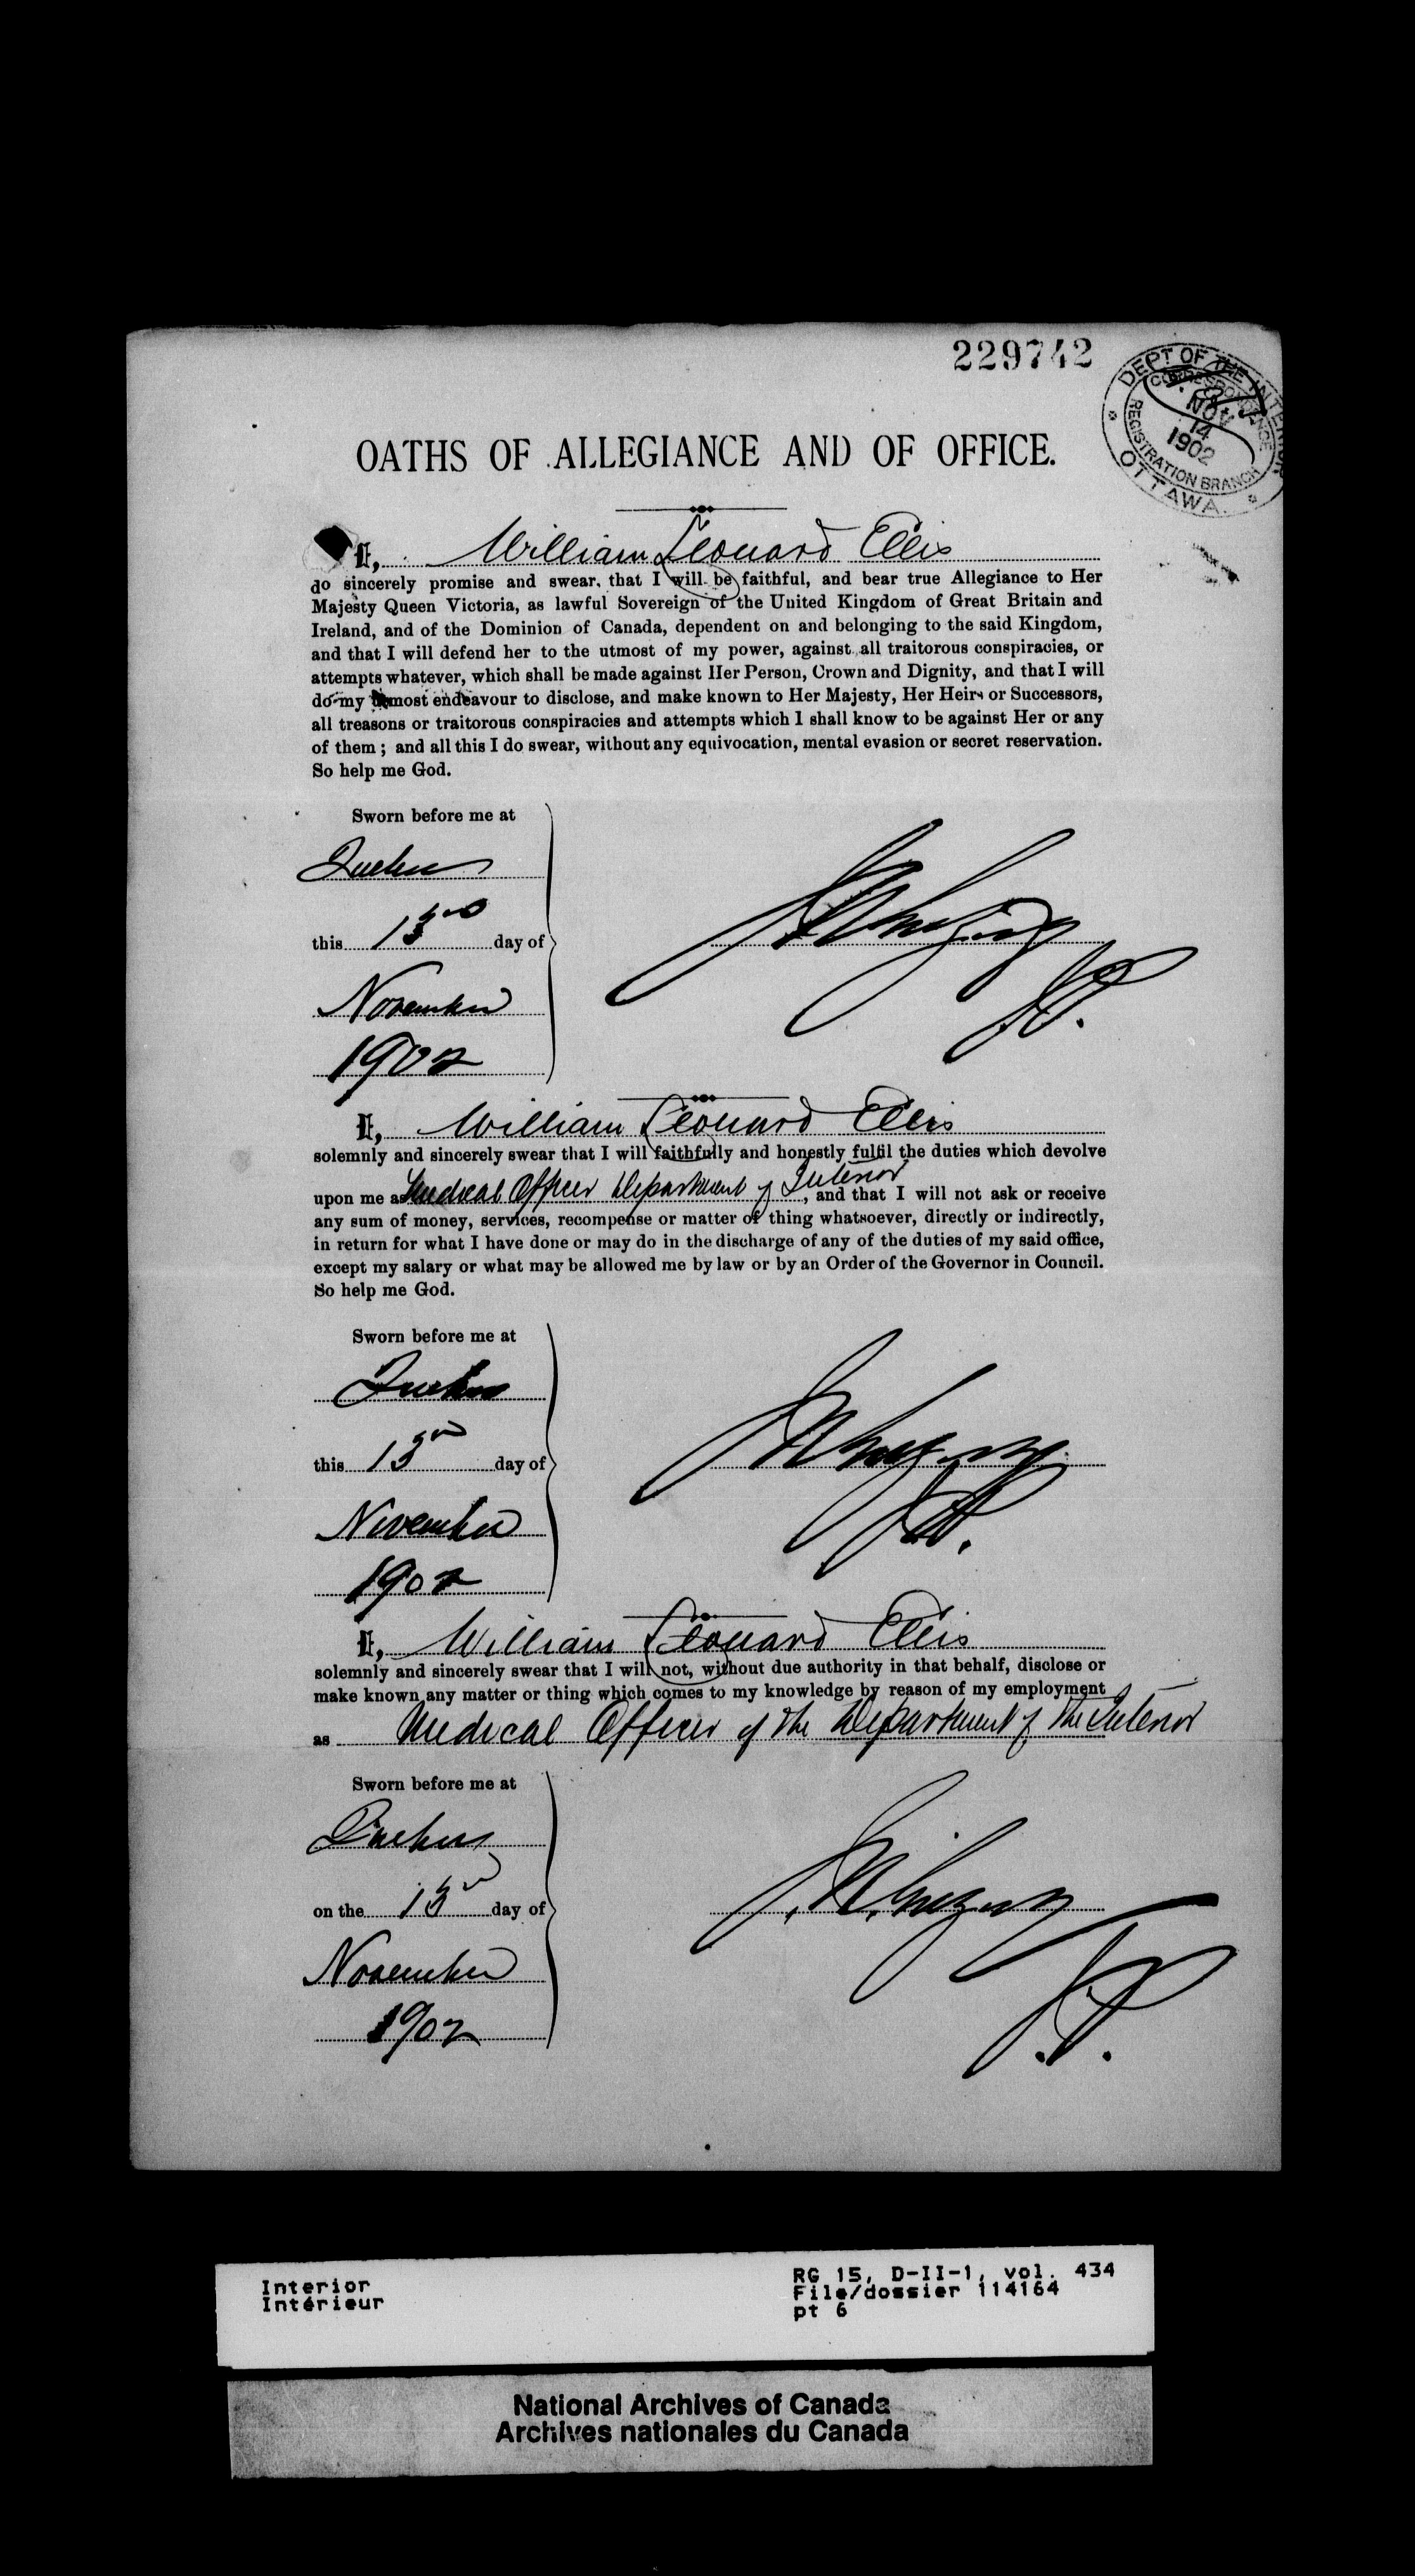 229742
DEPT OF THE INTERIOR
CORRESPONDENCE
NOV
14
1902
REGISTRATION BRANCH
OTTAWA.
OATHS OF ALLEGIANCE AND OF OFFICE.
I, William Leonard Ellis
do sincerely promise and swear, that I will be faithful, and bear true Allegiance to Her
Majesty Queen Victoria, as lawful Sovereign of the United Kingdom of Great Britain and
Ireland, and of the Dominion of Canada, dependent on and belonging to the said Kingdom,
and that I will defend her to the utmost of my power, against all traitorous conspiracies, or
attempts whatever, which shall be made against Her Person, Crown and Dignity, and that I will
do my utmost endeavour to disclose, and make known to Her Majesty, Her Heirs or Successors,
all treasons or traitorous conspiracies and attempts which I shall know to be against Her or any
of them ; and all this I do swear, without any equivocation, mental evasion or secret reservation.
So help me God.
Sworn before me at
Quebec
this 13 day of
November
1902
J.P.
I, William Leonard Ellis
solemnly and sincerely swear that I will faithfully and honestly fulfil the duties which devolve
upon me as Medical Officer Department of Interior, and that I will not ask or receive
any sum of money, services, recompense or matter of thing whatsoever, directly or indirectly,
in return for what I have done or may do in the discharge of any of the duties of my said office,
except my salary or what may be allowed me by law or by an Order of the Governor in Council.
So help me God.
Sworn before me at
Quebec
this 13 day of
November
1902
J.P.
I, William Leonard Ellis
solemnly and sincerely swear that I will not, without due authority in that behalf, disclose or
make known any matter or thing which comes to my knowledge by reason of my employment
as Medical Officer of the Department of the Interior
Sworn before me at
Quebec
on the 13 day of
November
1902
J.P.
Interior
Intérieur
RG 15, D-II-1, vol. 434
File/dossier 114164
pt 6
National Archives of Canada
Archives nationales du Canada